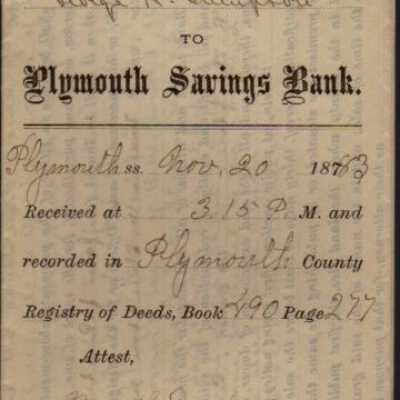 George
TO
Plymouth Savings Bank.
Plymouth ss. Nov. 20 1883
Received at 3.15 P. M. and
recorded in Plymouth County
Registry of Deeds, Book 490 Page 277
Attest,